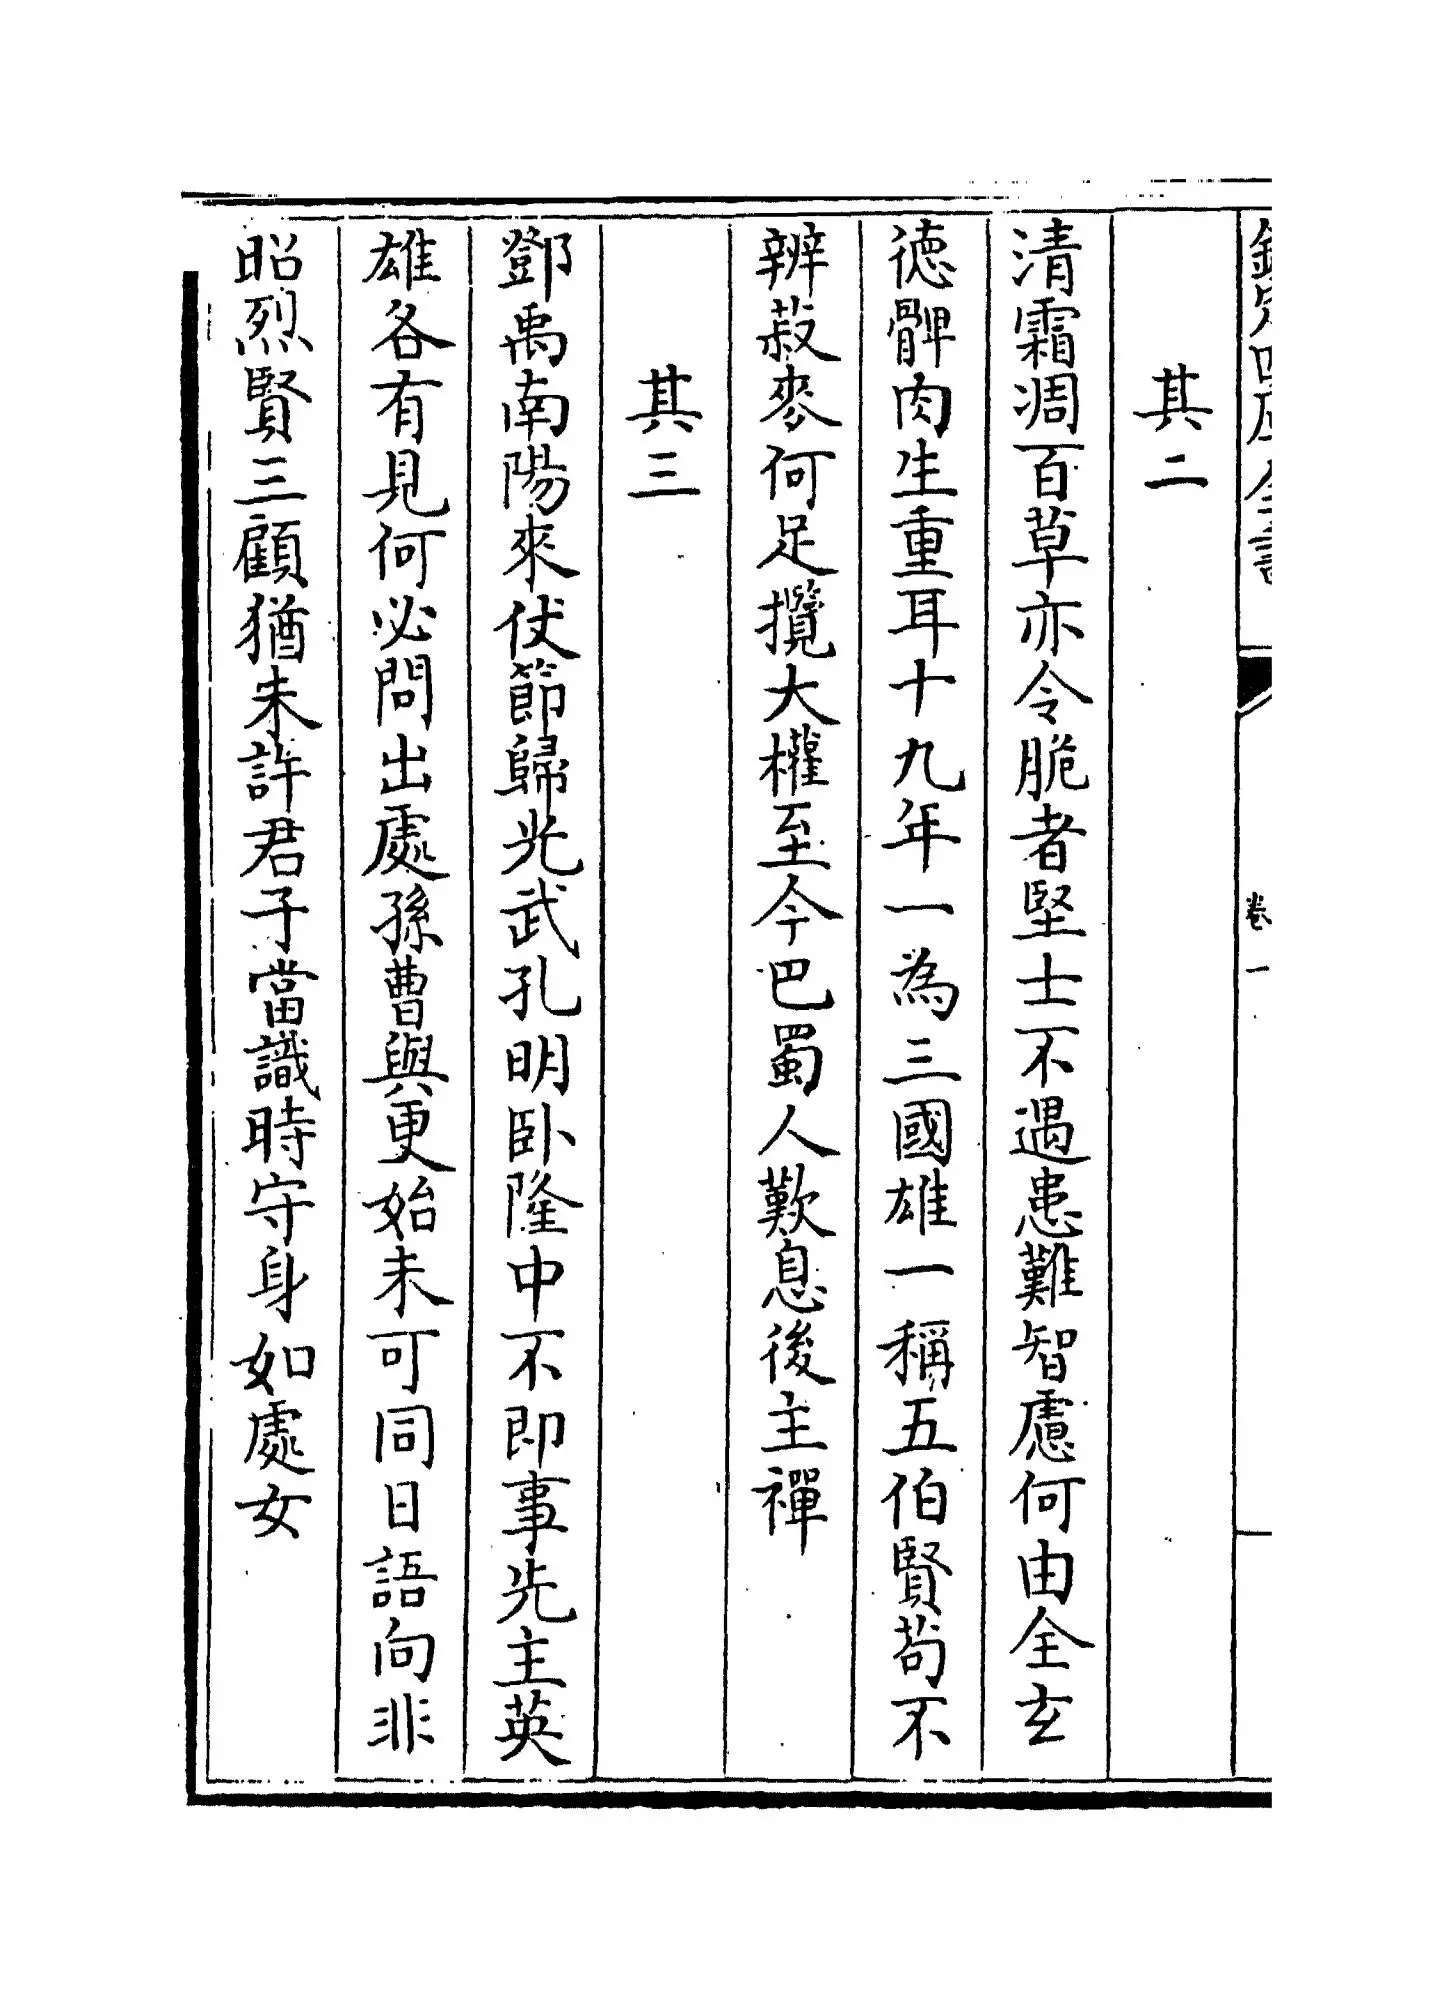 欽定四庫全書
卷一
其二
清霜凋百草亦令脆者堅士不遇患難智慮何由全玄
德髀肉生重耳十九年一為三國雄一稱五伯賢苟不
辨菽麥何足攬大權至今巴蜀人歎息後主禪
其三
鄧禹南陽來仗節歸光武孔明卧隆中不即事先主英
雄各有見何必問出處孫曹與更始未可同日語向非
昭烈賢三顧猶未許君子當識時守身如處女